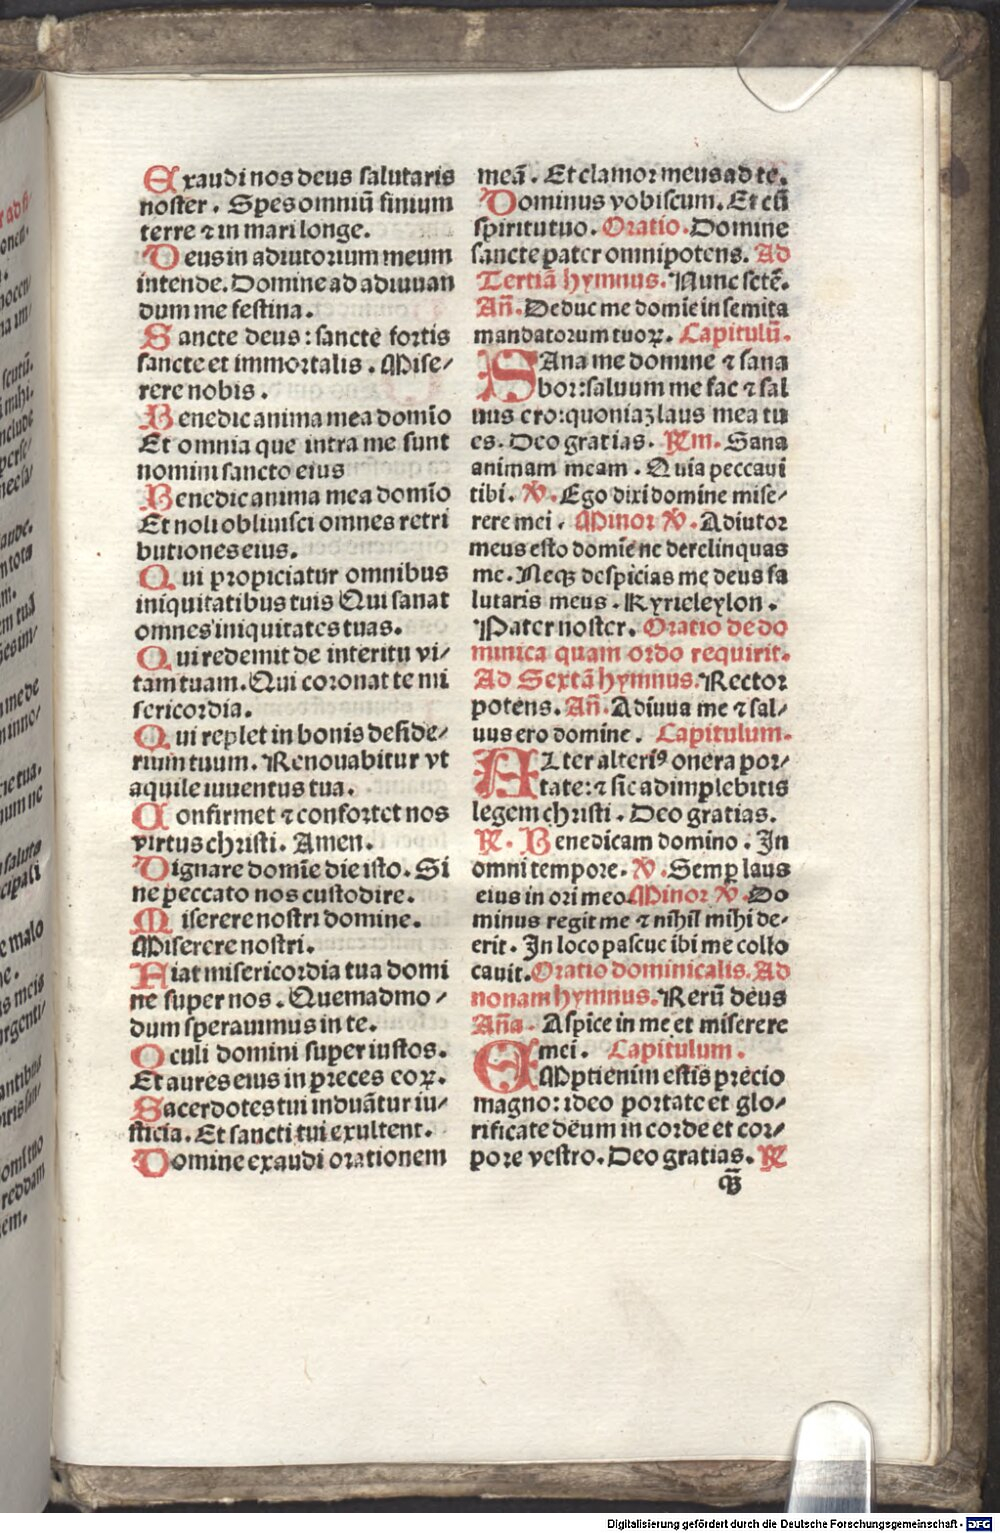 Exaudi nos deus salutaris
noster. Spes omniū finium
terre ⁊ in mari longe.
Deus in adiutorium meum
intende. Domine ad adiuuan
dum me festina.
Sancte deus: sancte fortis
sancte et immortalis. Mise/
rere nobis.
Benedic anima mea domīo
Et omnia que intra me sunt
nomini sancto eius
Benedic anima mea domīo
Et noli obliuisci omnes retri
butiones eius.
Qui propiciatur omnibus
iniquitatibus tuis Qui sanat
omnes iniquitates tuas.
Qui redemit de interitu vi/
tam tuam. Qui coronat te mi
sericordia.
Qui replet in bonis deside/
rium tuum. Renouabitur vt
aquile iuuentus tua.
Confirmet ⁊ confortet nos
virtus christi. Amen.
Dignare domīe die isto. Si
ne peccato nos custodire.
Miserere nostri domine.
Miserere nostri.
Fiat misericordia tua domi
ne super nos. Quemadmo/
dum sperauimus in te.
Oculi domini super iustos.
Et aures eius in preces eoꝝ.
Sacerdotes tui induātur iu/
sticia. Et sancti tui exultent.
Domine exaudi orationem
meā. Et clamor meus ad te.
Dominus vobiscum. Et cū
spiritu tuo. Oratio. Domine
sancte pater omnipotens. Ad
Tertiā hymnus. Nunc sctē.
Añ. Deduc me domīe in semita
mandatorum tuoꝝ. Capitulū.
SAna me domine ⁊ sana
bor: saluum me fac ⁊ sal
uus ero: quoniaꝫ laus mea tu
es. Deo gratias. Rm. Sana
animam meam. Quia peccaui
tibi. ℣. Ego dixi domine mise/
rere mei. Minor ℣. Adiutor
meus esto domīe ne derelinquas
me. Neqꝫ despicias me deus sa
lutaris meus. Kyrieleyson.
Pater noster. Oratio de do
minica quam ordo requirit.
Ad Sextā hymnus. Rector
potens. Añ. Adiuua me ⁊ sal/
uus ero domine. Capitulum.
ALter alteriꝰ onera por/
tate: ⁊ sic adimplebitis
legem christi. Deo gratias.
℟. Benedicam domino. In
omni tempore. ℣. Semꝑ laus
eius in ori meo. Minor ℣. Do
minus regit me ⁊ nihil mihi de/
erit. In loco pascue ibi me collo
cauit. Oratio dominicalis. Ad
nonam hymnus. Rerū deus
Aña. Aspice in me et miserere
mei. Capitulum.
EMptienim estis precio
magno: ideo portate et glo/
rificate deum in corde et cor/
pore vestro. Deo gratias. ℟
Digitalisierung gefördert durch die Deutsche Forschungsgemeinschaft - DFG